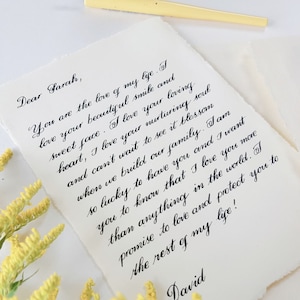 Dear Sarah,
You are the love of my life. I
love your beautiful smile and
sweet face. I love your loving
heart, I love your nurturing soul
and can't wait to see it blossom
when we build our family. I am
so lucky to have you and I want
you to know that I love you more
than anything in the world. I
promise to love and protect you to
the rest of my life!
David